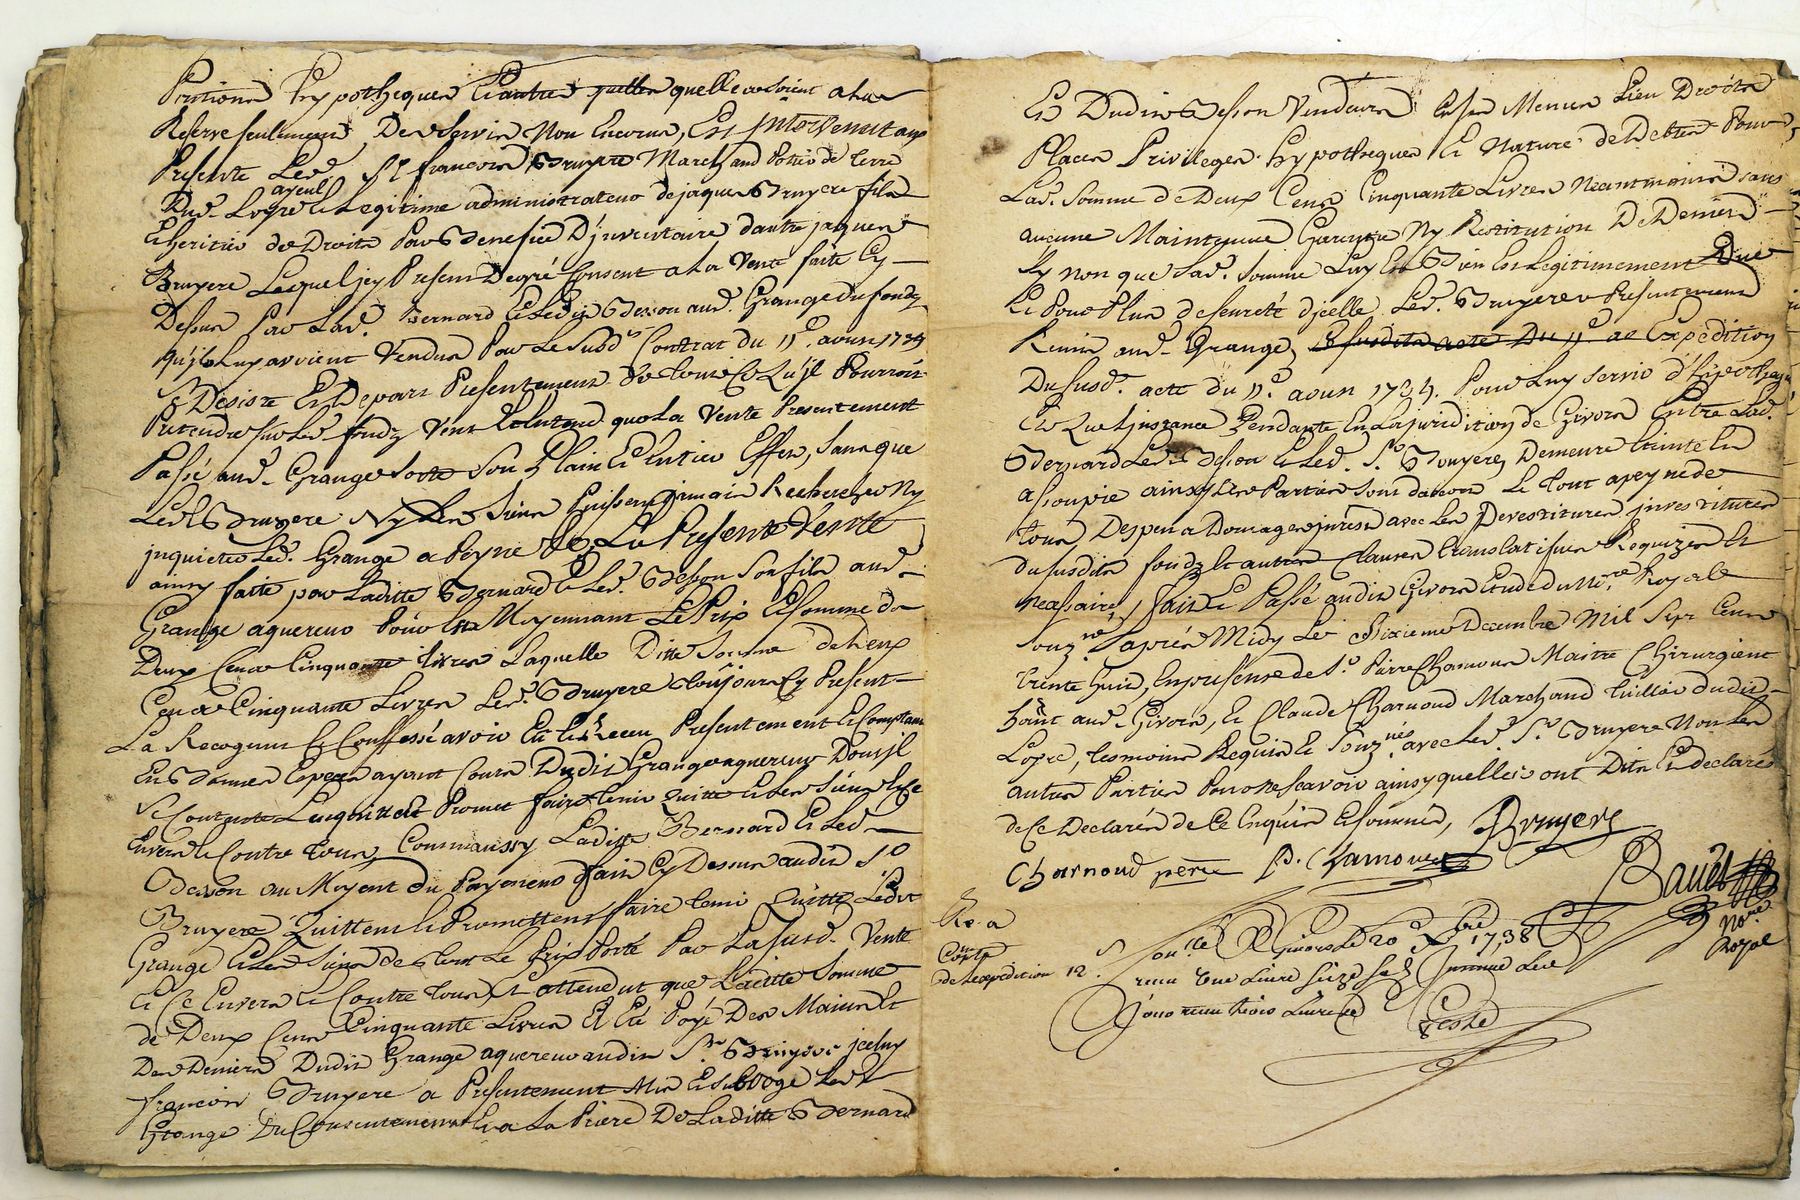 Pentions hypotheques Et autre quelles quelle ce soient a la
Reserve seulement Des Servis Non Encourus, Est Intervenut aux
Presente Led. Sr francois Bruyere Marchand Potier de terre
Dud. Loyre ayeul et Legitime administrateur de jaques Bruyere fils
Et heritier de Droits Par Benefice D'jnventaire d'autre jaques
Bruyere Lequel jcy Present De gré Consent a La Vente faite Cy
Dessus Par Lad. Bernard Et Ledit Besson aud. Grange du fondz
qu'ils Luy avoient Vendus Par Le Susd. Contrat du 11e. aoust 1734
Se Desiste Et Depart Presentement De tout Ce Qu'jl Pourroit
Pretendre sur Led. fondz Veut Et Entend que La Vente Presentement
Passé aud. Grange Sorte Son Plain Et Entier Effet, Sans que
Led. Bruyere Ny Les Siens Puissent jamais Rechercher Ny
jnquieter Led. Grange a Peyne De La Presente Vente
ainsy faite par Laditte Bernard Et Led. Besson Son fils aud.
Grange aquereur Pour Et Moyennant Le Prix Et Somme de
Deux Cens Cinquante Livres Laquelle Ditte Somme de Deux
Cens Cinquante Livres Led. Bruyere toujours Cy Present
La Recognut Et Confessé avoir Eu Et Receu Presentement Et Comptant
En Bonnes Especes ayant Cours Dudit Grange aquereur Dont jl
Se Contente L'en quitte Et Promet faire tenir Quitte Et Les Siens
Envers Et Contre tous, Comm'aussy Laditte Bernard Et Led.
Besson au Moyent du Payement fait Cy Dessus audit Sr
Bruyere Quittent Et Promettent faire tenir Quitte Ledit
Grange Et Les Siens de tout Le Prix Porté Par La Susd. Vente
Et Ce Envers Et Contre tous, Et attendut que Laditte Somme
de Deux Cens Cinquante Livres Et Eté Payé Des Mains Et
Des Deniers Dudit Grange aquereur audit Sr. Bruyere jceluy
francois Bruyere a Presentement Mis Et Subbrogé Led.
Grange Du Consentement Et a La Priere De Laditte Bernard
Et Dudit Besson Vendeurs En Ses Mesmes Lieu Droits
Places Privileges hypotheques Et Nature de Debtes Pour
Lad. Somme de Deux Cens Cinquante Livres Neantmoins sans
aucune Maintenue Garentie Ny Restitution De Deniers
Sy non que Lad. Somme Luy Est Bien Et Legitimement Due
Et Pour Plus de Seureté D'jcelle Led. Bruyere a Presentement
Remis aud. Grange, Expedition
Du Susd. acte du 11e. aoust 1734. Pour Luy Servir d'hipotheque
Et Que L'jnstance Pendante En La juridition de Givors Entre Lad.
Bernard Led. Besson Et Led. Sr. Bruyere, Demeure Eteinte Et
assoupie ainsy Les Parties Sont d'accord Le tout a peyne de
tous Despens Domages jnterests avec Les Devestitures jnvestitures
du Susdits fondz Et autres Clauses translatifves Requizes Et
necessaires, fait Et Passé audit Givors Etude du Nore. Royal
Souzné. apres Midy Le Sixieme Decembre Mil Sept Cens
trente huit, En presense de Sr. Pierre Chamoux Maitre Chirurgient
habitt aud. Givors, Et Claude Charnoud Marchand tuillier dudit
Loyre, tesmoins Requis Et Souznés avec Led. Sr. Bruyere Non Les
autres Parties Pour Ne Scavoir ainsy quelles ont Dit Et declaré
de Ce Declarés de Ce Enquis Et Sommés, Bruyere
Charnoud pere P. Chamoux
Bauet
Nore
Royal
Compte
de L'expedition 12 s.
Conlle. A Givors Le 20e. Xbre 1738
reçu une Livre Seize Sols